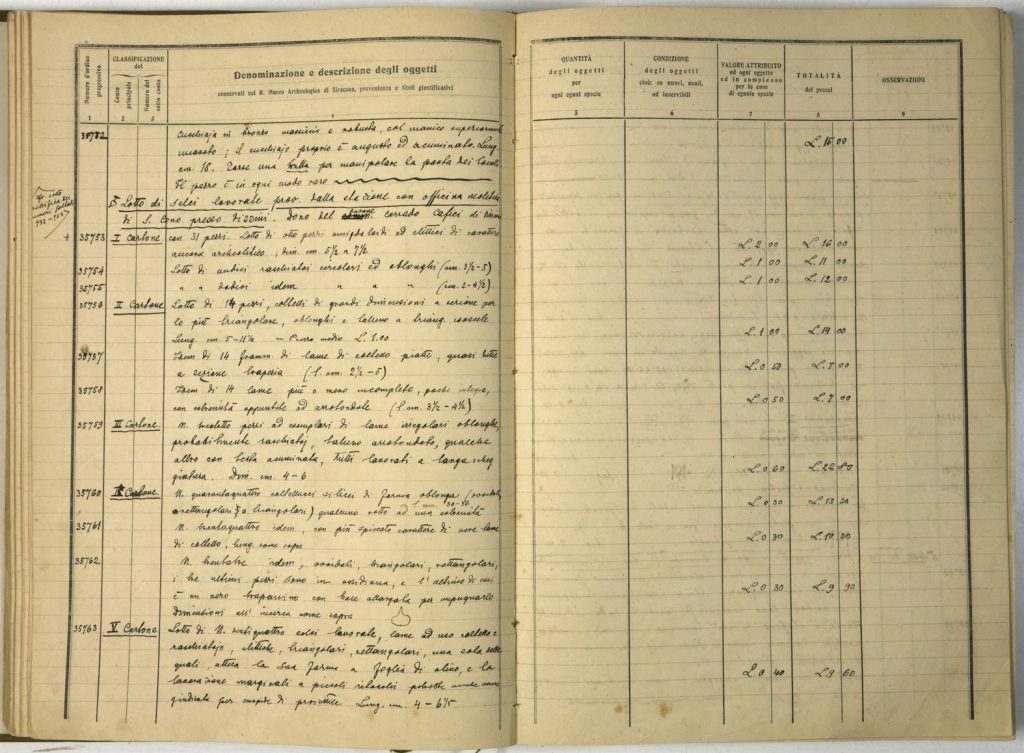 Numero d'ordine progressivo
CLASSIFICAZIONE del
Conto principale
Numero del sotto conto
Denominazione e descrizione degli oggetti
conservati nel R. Museo Archeologico di Siracusa, provenienza e titoli giustificativi
1 2 3 4
35752 Cucchiaja in bronzo massiccio e robusta, col manico superiormente
; il cucchiajo proprio è angusto ed acuminato. Lung.
cm. 18. Forse una per manipolare la pasta dei
Il pezzo è in ogni modo raro
Lotto di selci lavorate prov. dalla stazione con officina neolitica
di S. Cono presso . Dono del barone Corrado Cafici di
+ 35753 I Cartone con 31 pezzi. Lotto di otto pezzi amigdaloidi ed ellittici di carattere
ancora archeolitico, dim. cm. 5½ a 7½
35754 Lotto di undici raschiatoi circolari ed oblonghi (cm. 3½-5)
35755 " " dodici idem " " " (cm. 2-4½)
35756 II Cartone Lotto di 14 pezzi, coltelli di grandi dimensioni a sezione per
lo più triangolare, oblonghi e taluno a triang. isoscele
Lung. cm. 5-11½ — Prezzo medio L. 1.00
35757 Idem di 14 framm. di lame di coltello piatte, quasi tutte
a sezione trapezia (l. cm. 2½-5)
35758 Idem di 14 lame più o meno incomplete, poche integre,
con estremità appuntite ad arrotondate (l. cm. 3½-4½)
35759 III Cartone. N. trentotto pezzi ad esemplari di lame irregolari oblunghe,
probabilmente raschiatoj, taluno arrotondato, qualche
altro con testa acuminata, tutti lavorati a larga scheg
giatura. Dim. cm. 4-6
35760 Cartone. N. quarantaquattro coltellucci silicei di forma oblonga (ovoidali,
rettangolari o triangolari) qualcuno rotto ad una estremità
l. mm. 30-56
35761 N. trentaquattro idem, con più spiccato carattere di vere lame
di coltello, lung. come sopra
35762 N. trentatre idem, ovoidali, triangolari, rettangolari,
i tre ultimi pezzi sono in ossidiana, e l'ultimo di essi
è un vero con base allargata per impugnarlo
Dimensioni all'incirca come sopra
35763 V Cartone Lotto di N. ventiquattro selci lavorate, lame ad uso coltello e
raschiatojo, ellittiche, triangolari, rettangolari, una sola delle
quali, attesa la sua forma a foglia di olivo, e la
lavorazione marginale a piccoli ritocchi potrebbe anche essere
giudicata per cuspide di proiettile Lung. cm. 4-6½
QUANTITÀ degli oggetti per ogni egual specie
CONDIZIONE degli oggetti cioè: se nuovi, usati, od inservibili
VALORE ATTRIBUITO ad ogni oggetto ed in complesso per le cose di eguale specie
TOTALITÀ dei prezzi
OSSERVAZIONI
5 6 7 8 9
L. 15 00
L. 2 00 L. 16 00
L. 1 00 L. 11 00
L. 1 00 L. 12 00
L. 1 00 L. 14 00
L. 0 50 L. 7 00
L. 0 50 L. 7 00
L. 0 60 L. 22 80
L. 0 30 L. 13 20
L. 0 30 L. 10 20
L. 0 30 L. 9 90
L. 0 40 L. 9 60